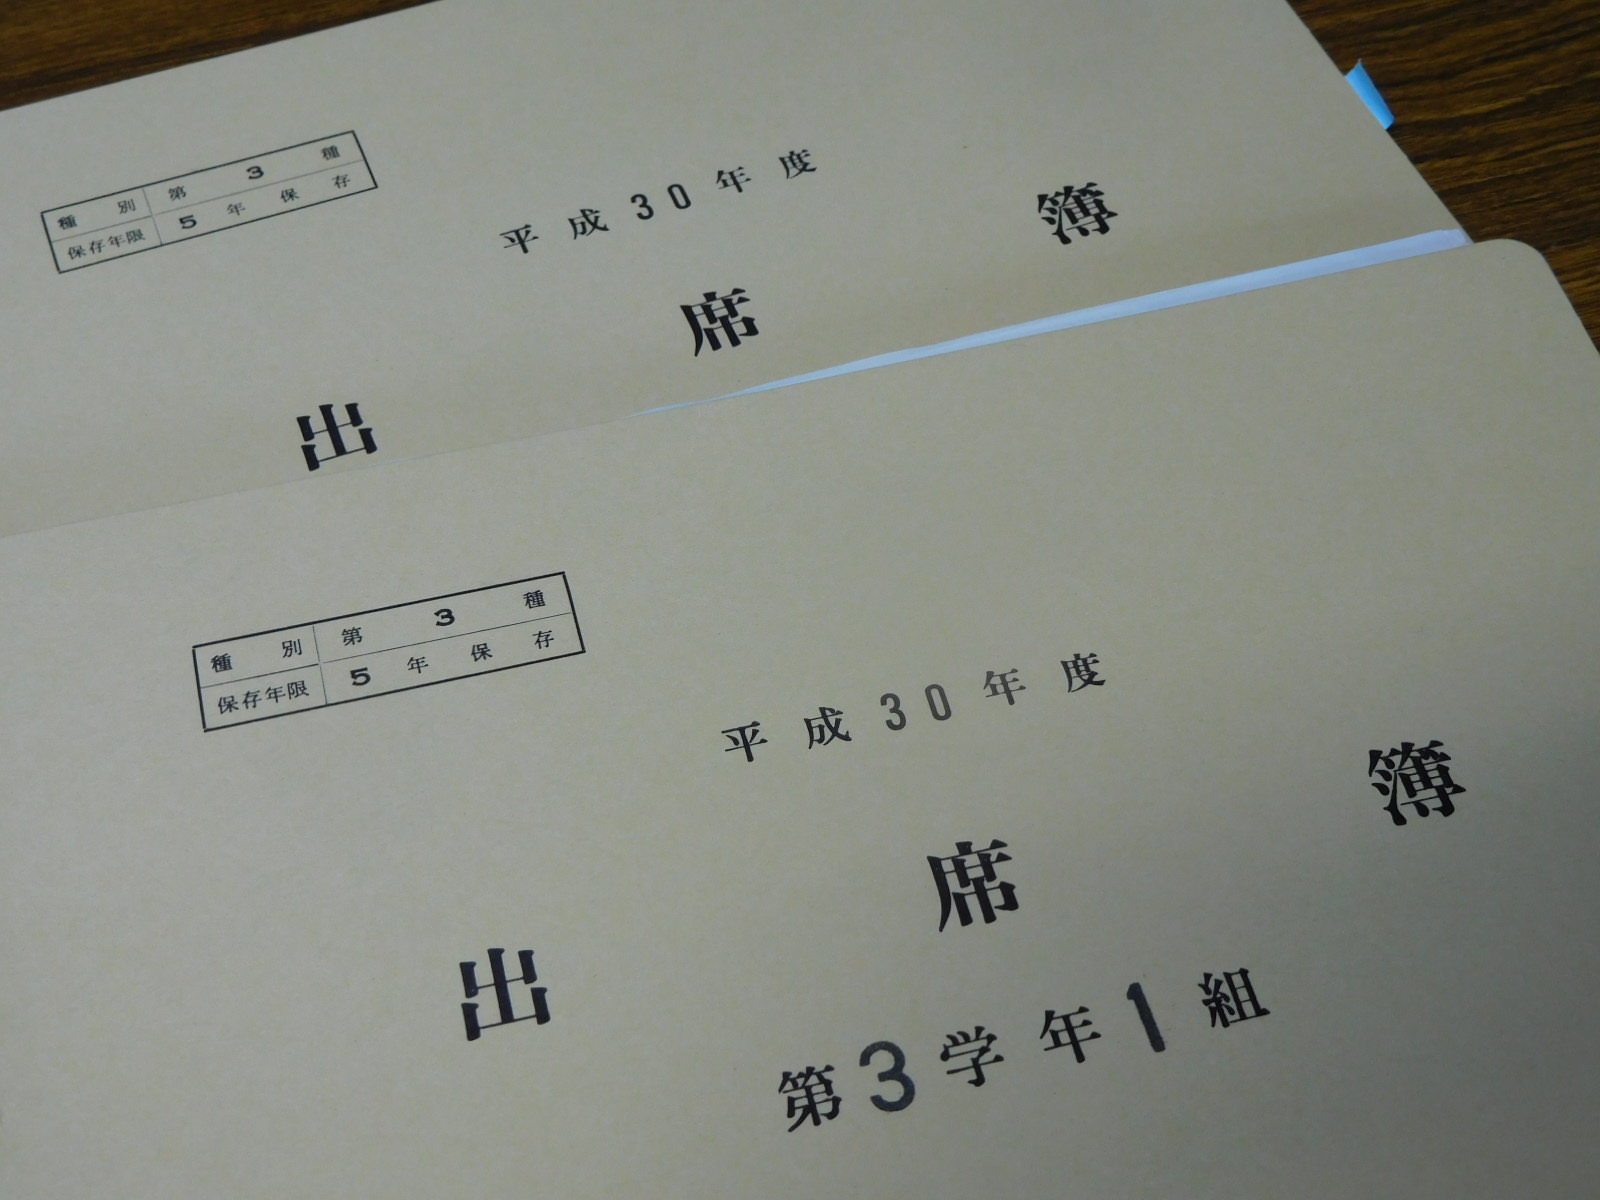 種別 第3種
保存年限 5年保存
平成30年度
出席簿
種別 第3種
保存年限 5年保存
平成30年度
出席簿
第3学年1組